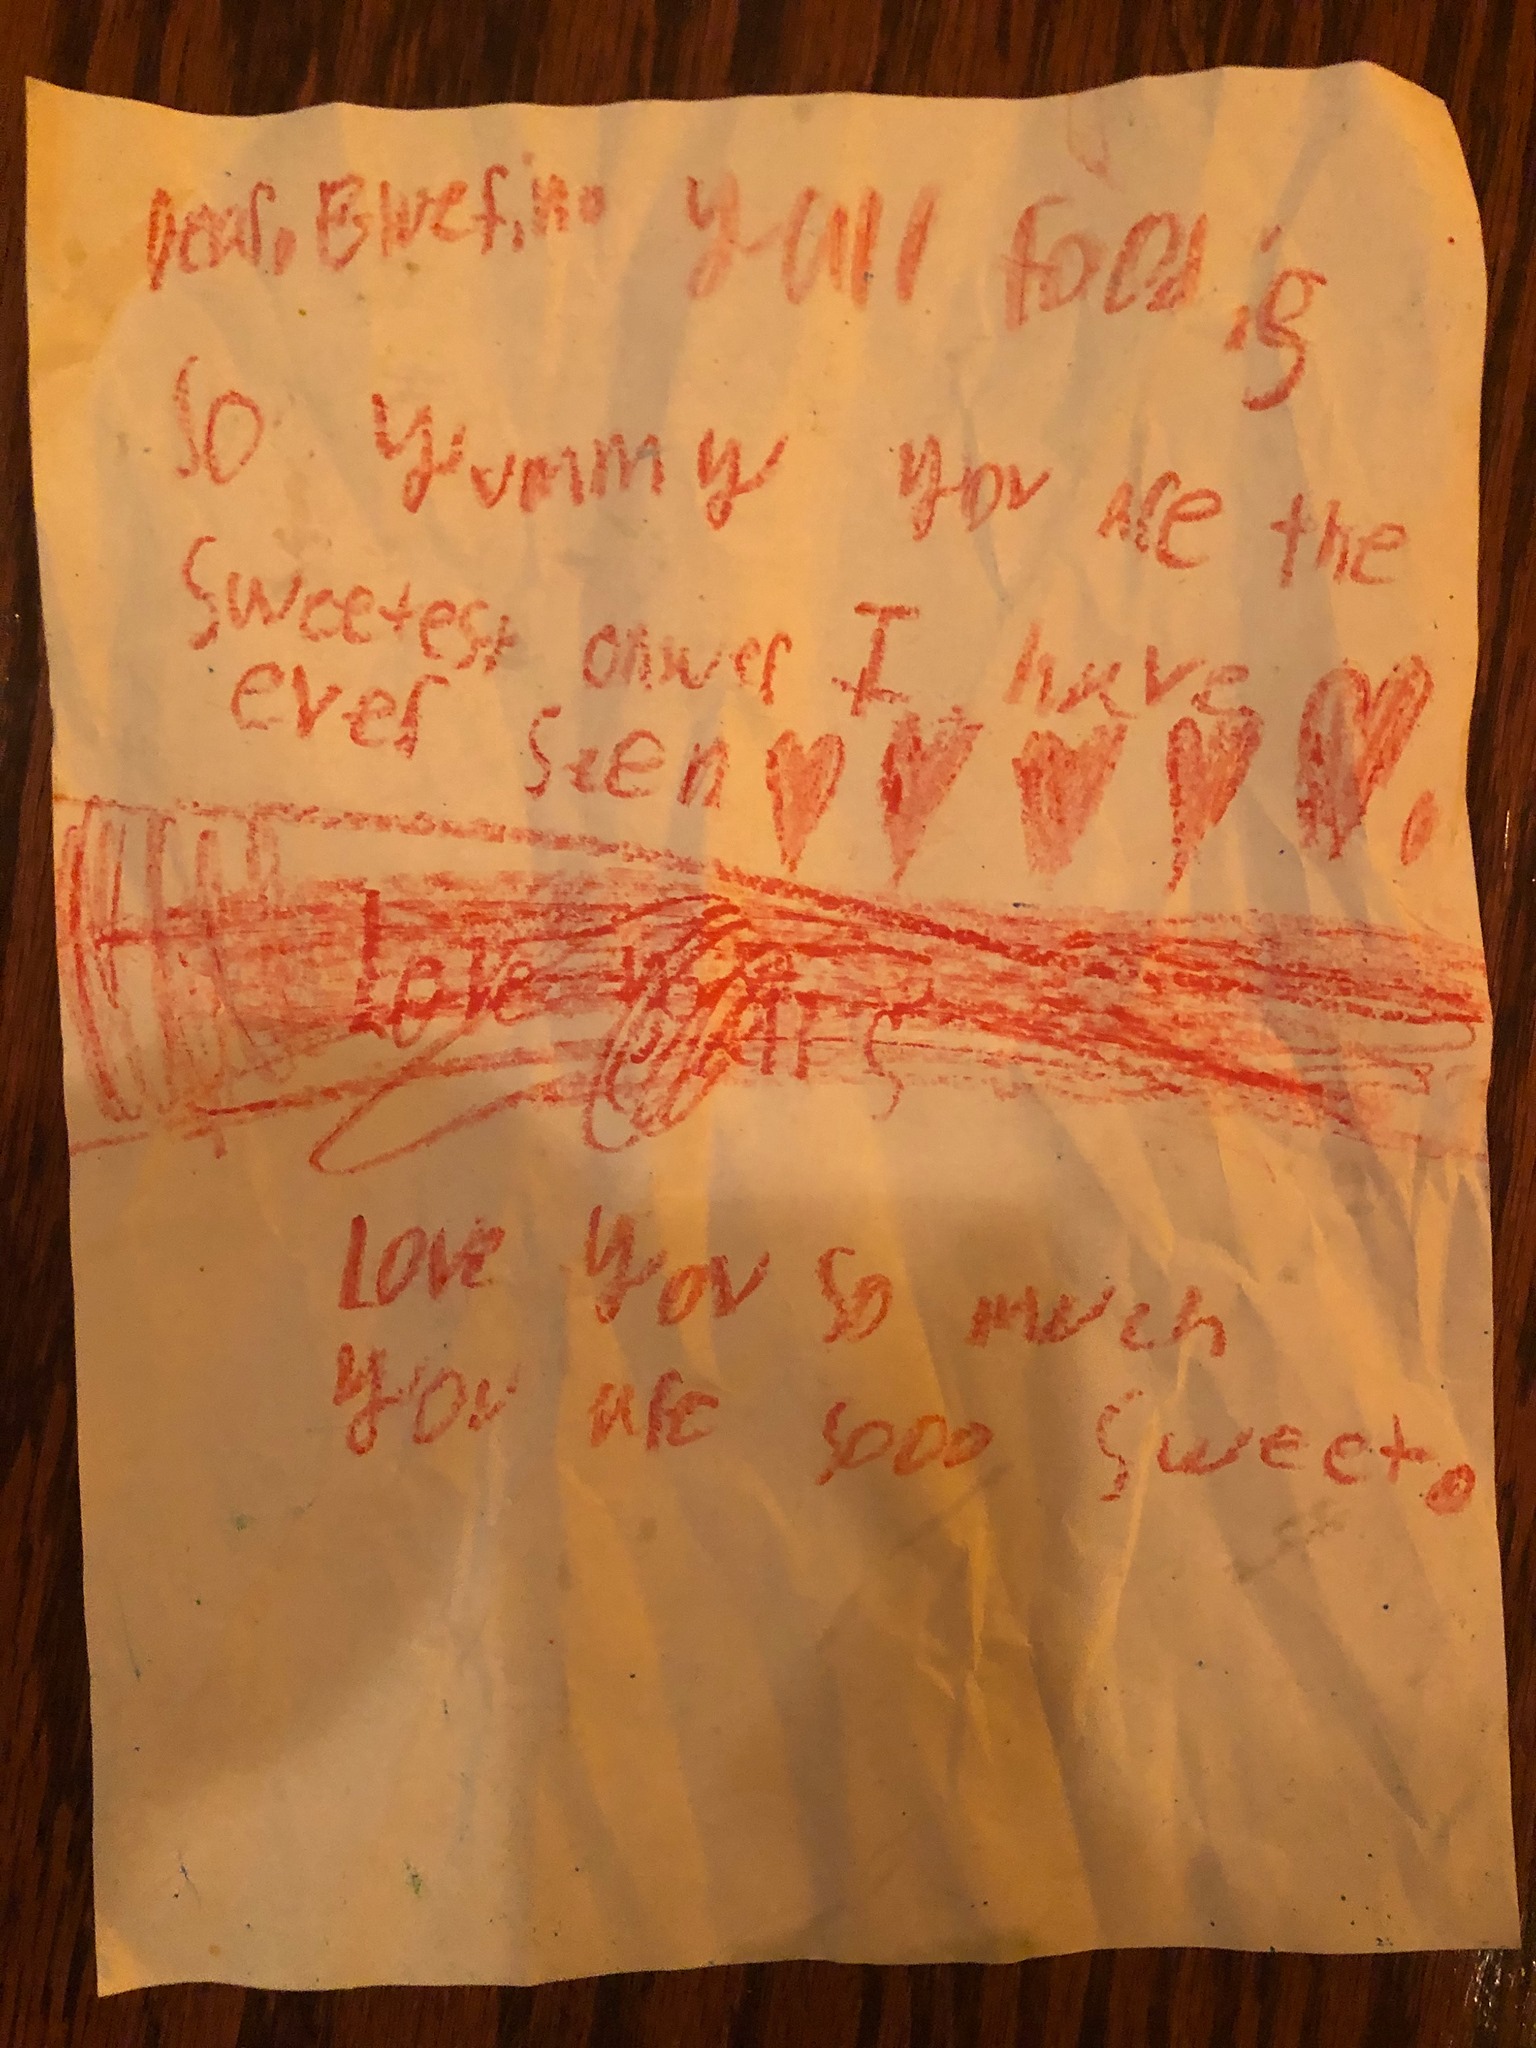 Dear, your food is
so yummy you are the
Sweetest onwer I have
ever seen
Love
Love you so much
you are sooo Sweet.